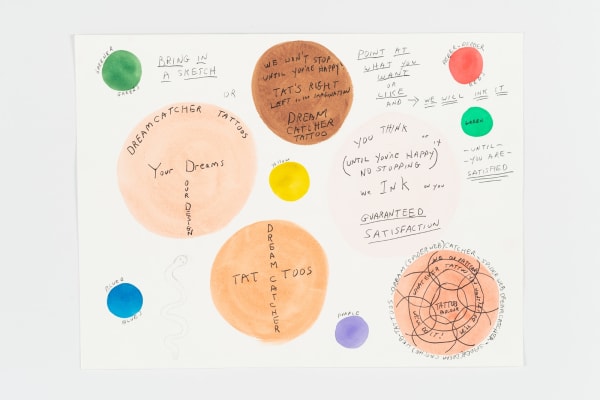 GREENER
GREEN!
BRING IN
A SKETCH
OR
WE WON'T STOP
UNTIL YOU'RE HAPPY!
TAT'S RIGHT
LEFT IMAGINATION
DREAM
CATCHER
TATTOO
POINT AT
WHAT YOU
WANT
OR
LIKE
AND → WE WILL INK IT
GREEN
-UNTIL-
-YOU ARE-
SATISFIED
DREAMCATCHER TATTOOS
YOUR DREAMS
OUR DESIGN
YELLOW
YOU THINK OF IT
(UNTIL YOU'RE HAPPY)
NO STOPPING
WE INK ON YOU
GUARANTEED
SATISFACTION
DREAM CATCHER
TAT TOOS
BLUER
BLUE!
PURPLE
DREAM (SPIDER WEB) CATCHER
WHATEVER
TATTOO